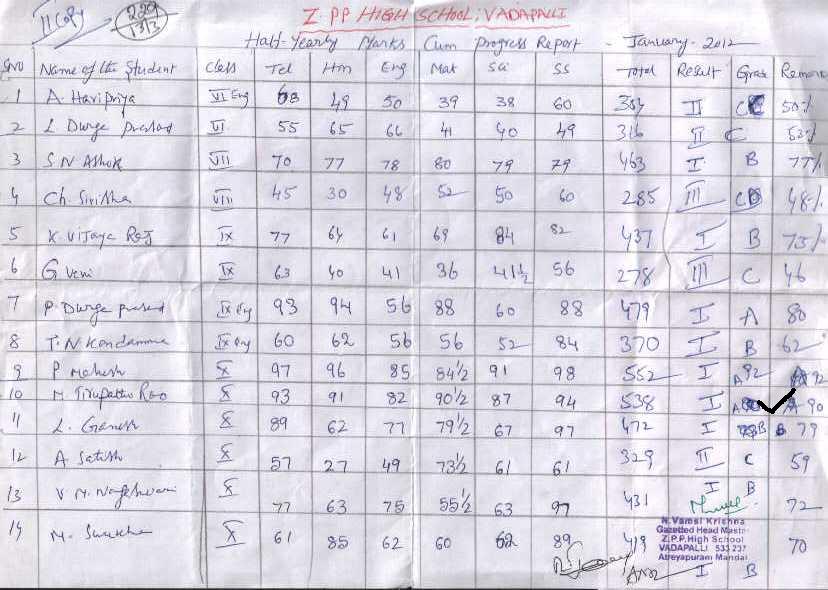 II Copy
229
13/3
Z.PP HIGH SCHOOL; VADAPALLI
Half-Yearly Marks Cum Progress Report - January-2012
SNO Name of the Student Class Tel Hin Eng Mat Sci SS Total Result Grade Remark
1 A. Haripriya VI Eng 68 49 50 39 38 60 II C 50%
2 L. Durga prasad VI 55 65 66 41 40 49 316 II C 53%
3 S N Ashok VII 70 77 78 80 79 79 463 I B 77%
4 Ch. Sirisha VIII 45 30 48 52 50 60 285 III C 48%
5 K. Vijaya Raj IX 77 64 61 69 84 82 437 I B 73%
6 G Veni IX 63 40 41 36 41½ 56 278 III C 46
7 P. Durga prasad IX Eng 93 94 56 88 60 88 479 I A 80
8 T. N Kondamma IX Eng 60 62 56 56 52 84 370 I B 62
9 P Mahesh X 97 96 85 84½ 91 98 552 I A 92 A 92
10 M. Tirupathi Rao X 93 91 82 90½ 87 94 538 I A A 90
11 L. Ganesh X 89 62 77 79½ 67 97 472 I B B 79
12 A Satish X 57 27 49 73½ 61 61 329 II C 59
13 V. M. Nageshwari X 77 63 75 55½ 63 97 431 I B 72
14 M. X 61 85 62 60 62 89 419 I B 70
N.Vamsi Krishna
Gazetted Head Master
Z.P.P.High School
VADAPALLI 533 237
Atreyapuram Mandal